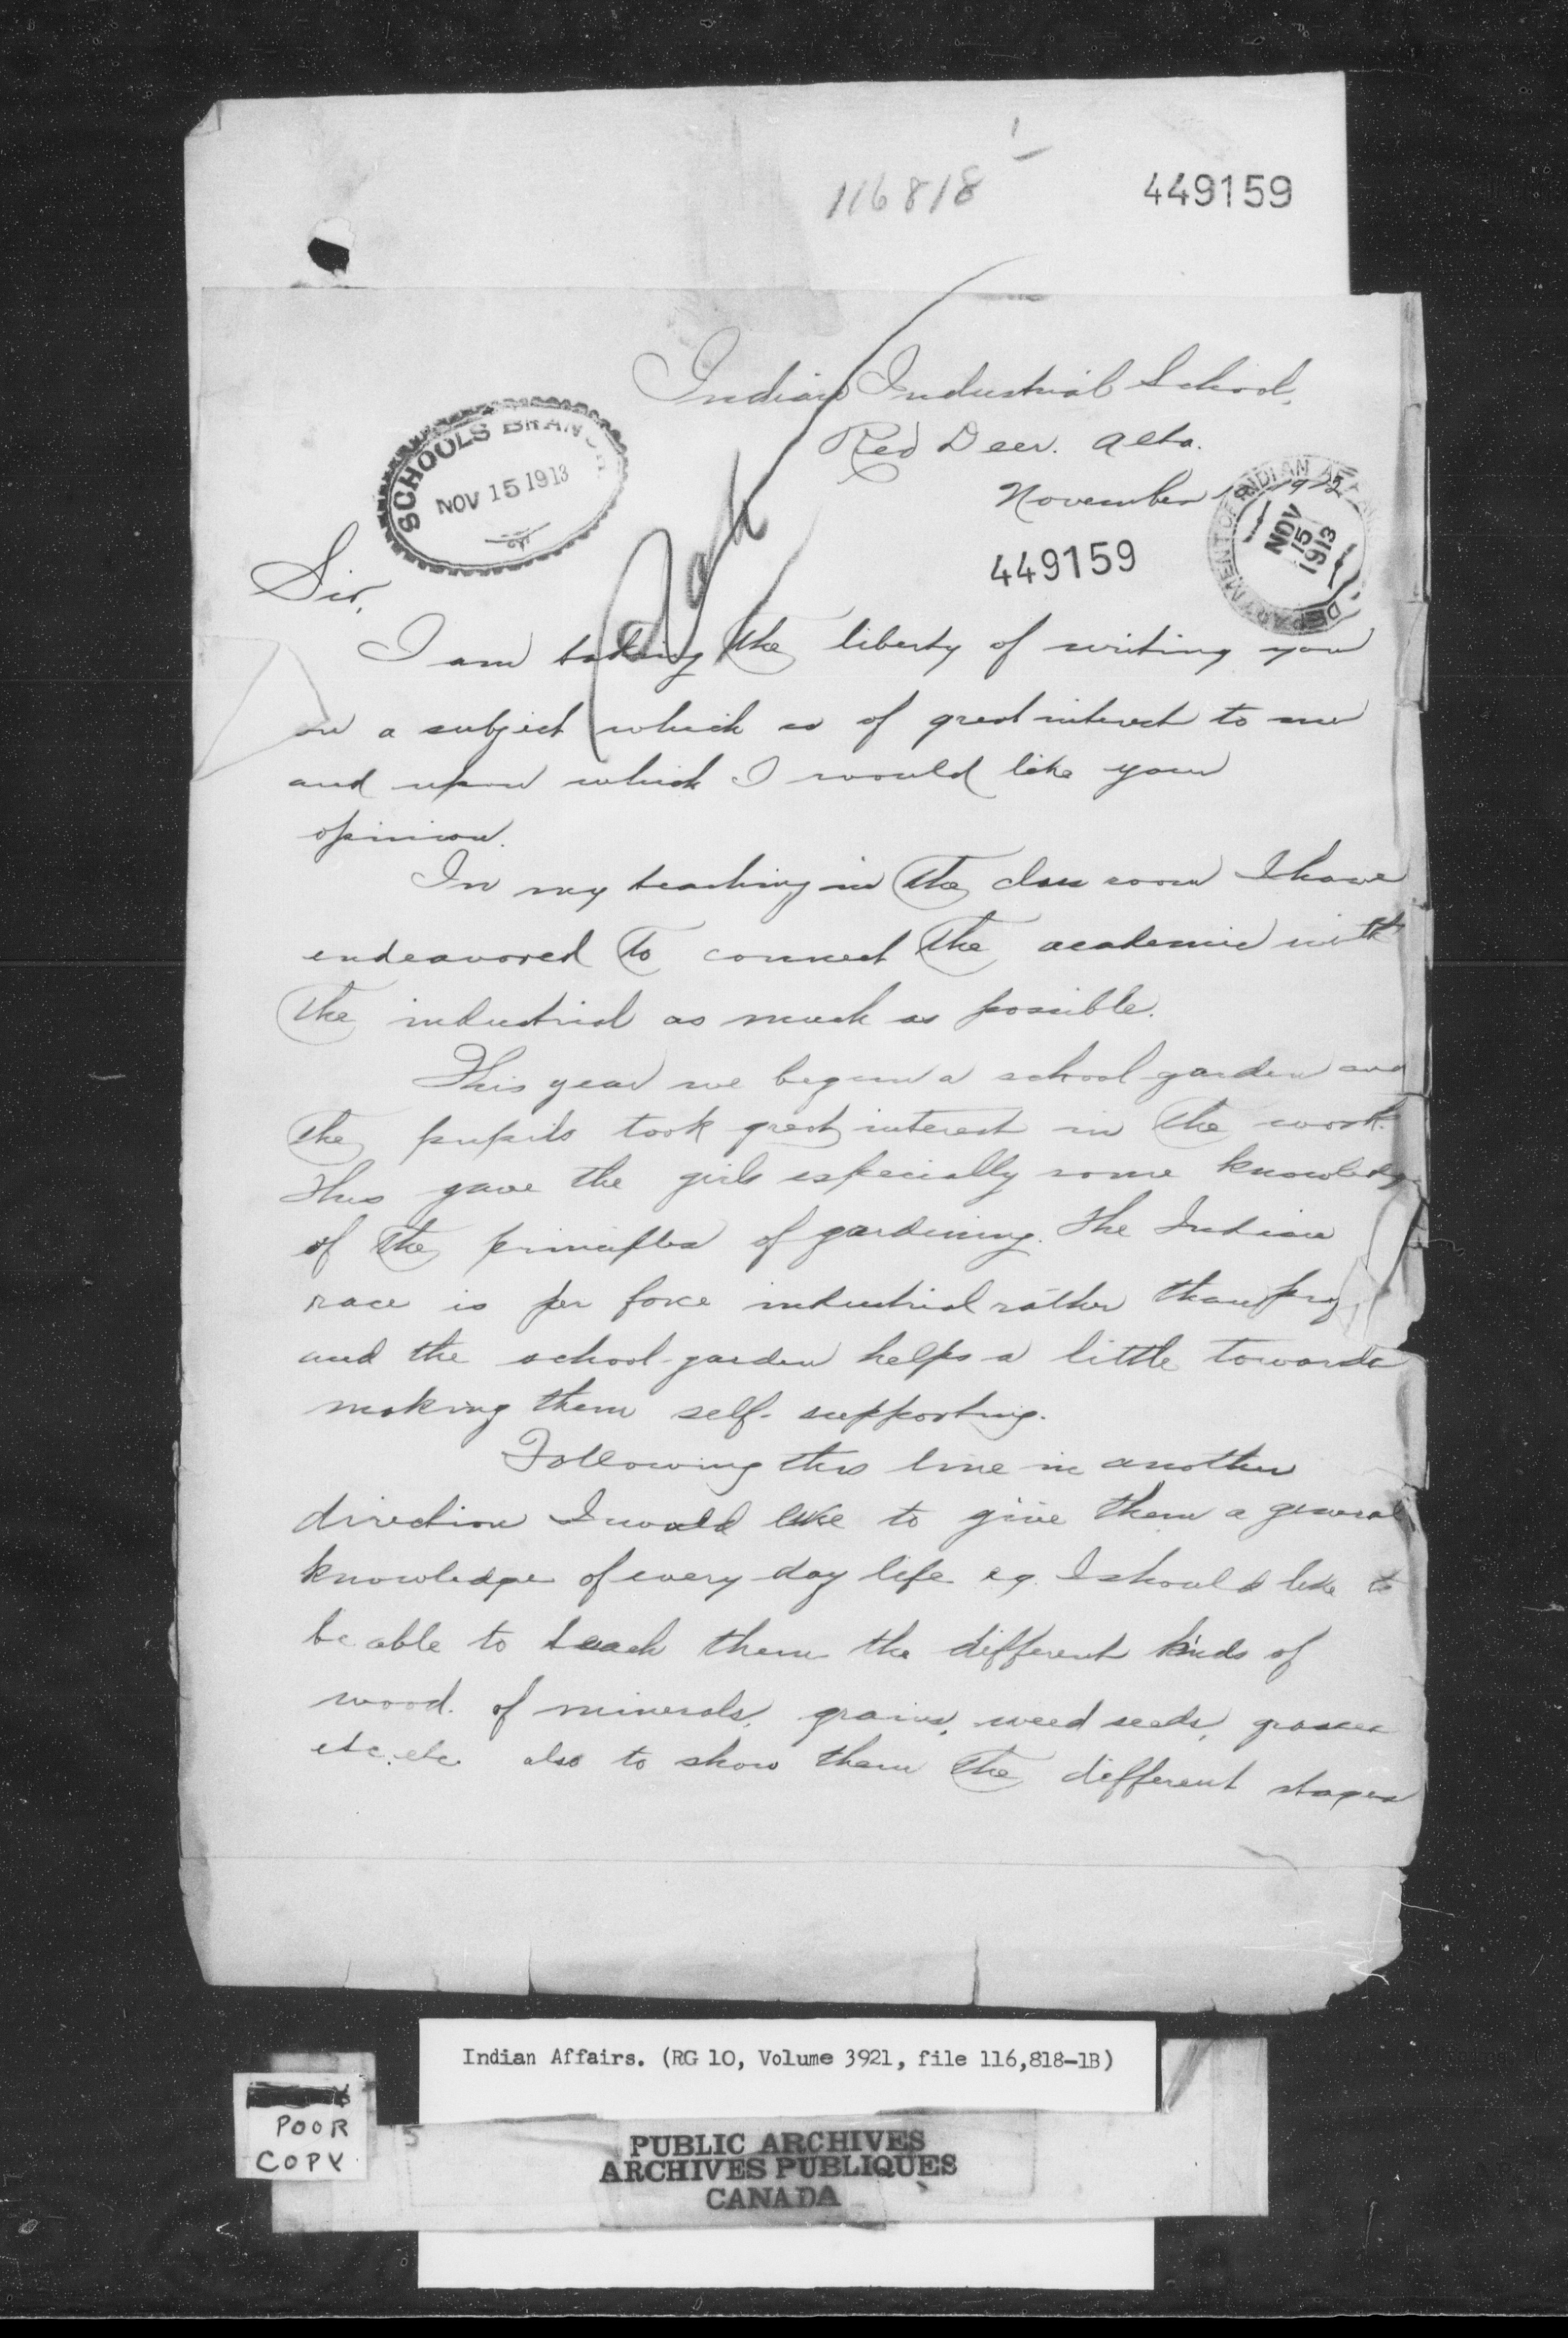 116818
449159
Indian Industrial School,
Red Deer. Alta.
November 1912
SCHOOLS BRANCH
NOV 15 1913
DEPARTMENT OF INDIAN AFFAIRS
NOV
15
1913
449159
Sir,
I am taking the liberty of writing you
on a subject which is of great interest to me
and upon which I would like your
opinion.
In my teaching in the class room I have
endeavored to connect the academic with
the industrial as much as possible.
This year we began a school garden and
the pupils took great interest in the work.
This gave the girls especially some knowledge
of the principles of gardening. The Indian
race is per force industrial rather than
and the school-garden helps a little towards
making them self-supporting.
Following this line in another
direction I would like to give them a general
knowledge of every day life e.g. I should like to
be able to teach them the different kinds of
wood. of minerals, grains, weed seeds, grasses
etc. etc. also to show them the different stages
Indian Affairs. (RG 10, Volume 3921, file 116,818-1B)
POOR
COPY
5
PUBLIC ARCHIVES
ARCHIVES PUBLIQUES
CANADA